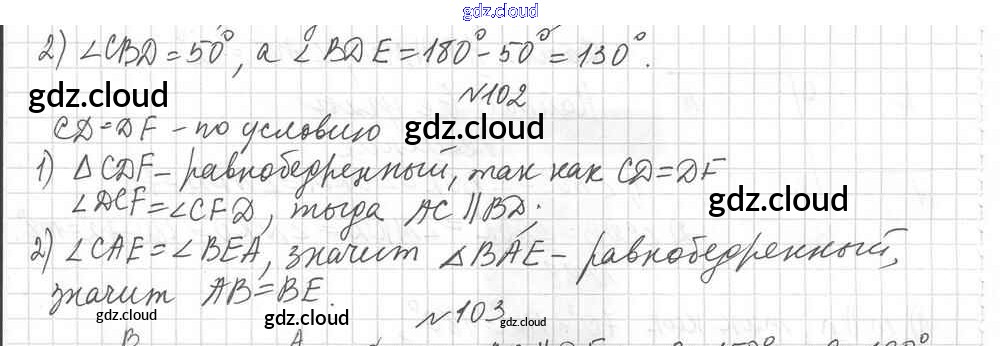 gdz.cloud
2) ∠CBD = 50°, а ∠BDE = 180° - 50° = 130°.
gdz.cloud
№102
CD = DF - по условию gdz.cloud
1) △CDF - равнобедренный, так как CD = DF
∠DCF = ∠CFD, тогда AC ∥ BD; gdz.cloud
2) ∠CAE = ∠BEA, значит △BAE - равнобедренный,
значит AB = BE.
gdz.cloud gdz.cloud №103 gdz.cloud